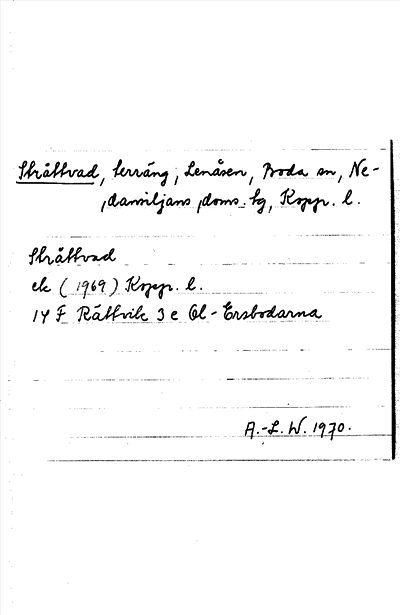 Stråttvad, terräng, Lenåsen, Boda sn, Ne-
dansiljans doms. tg, Kopp. l.
Stråttvad
ek (1969) Kopp. l.
14 F Rättvik 3 e Ol-Ersbodarna
A.-L. W. 1970.